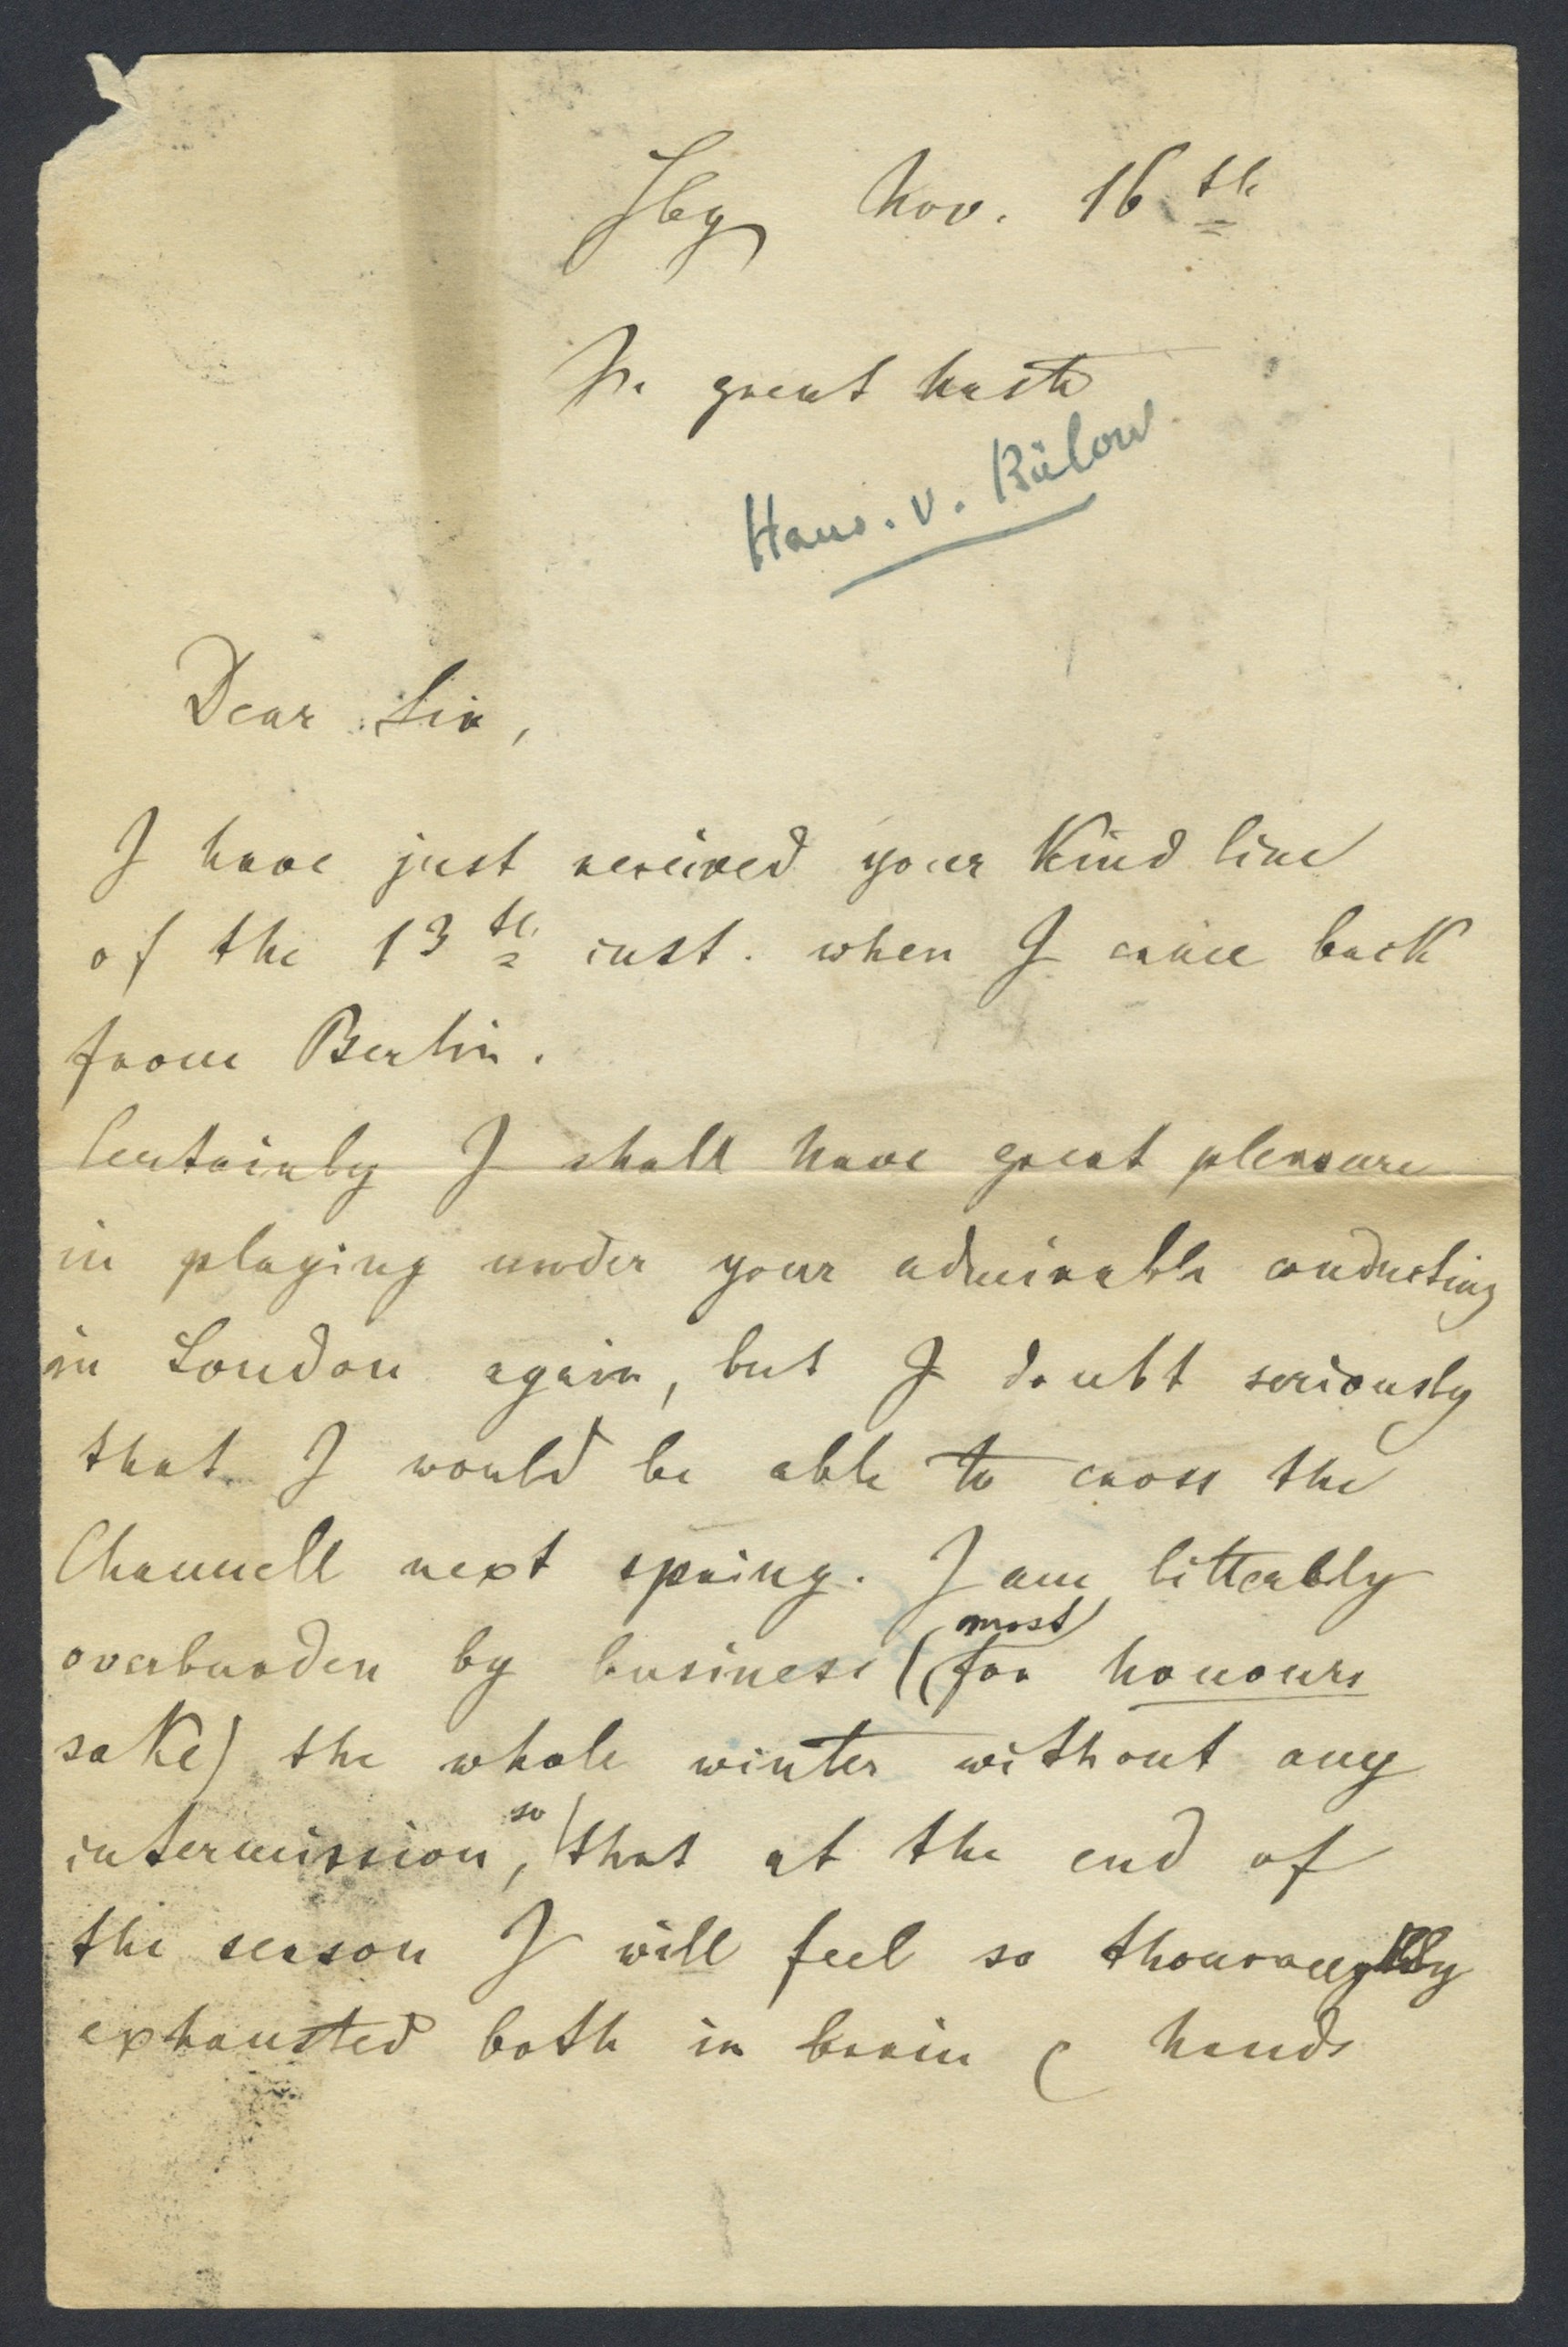 Hbg Nov. 16th
In great haste
Hans. v. Bülow
Dear Sir,
I have just received your kind line
of the 13th inst. when I came back
from Berlin.
Certainly I shall have great pleasure
in playing under your admirable conducting
in London again, but I doubt seriously
that I would be able to cross the
Channell next spring. I am litterally
overburden by business (most for honours
sake) the whole winter without any
intermission, so that at the end of
the season I will feel so thouroughly
exhausted both in brain & hands